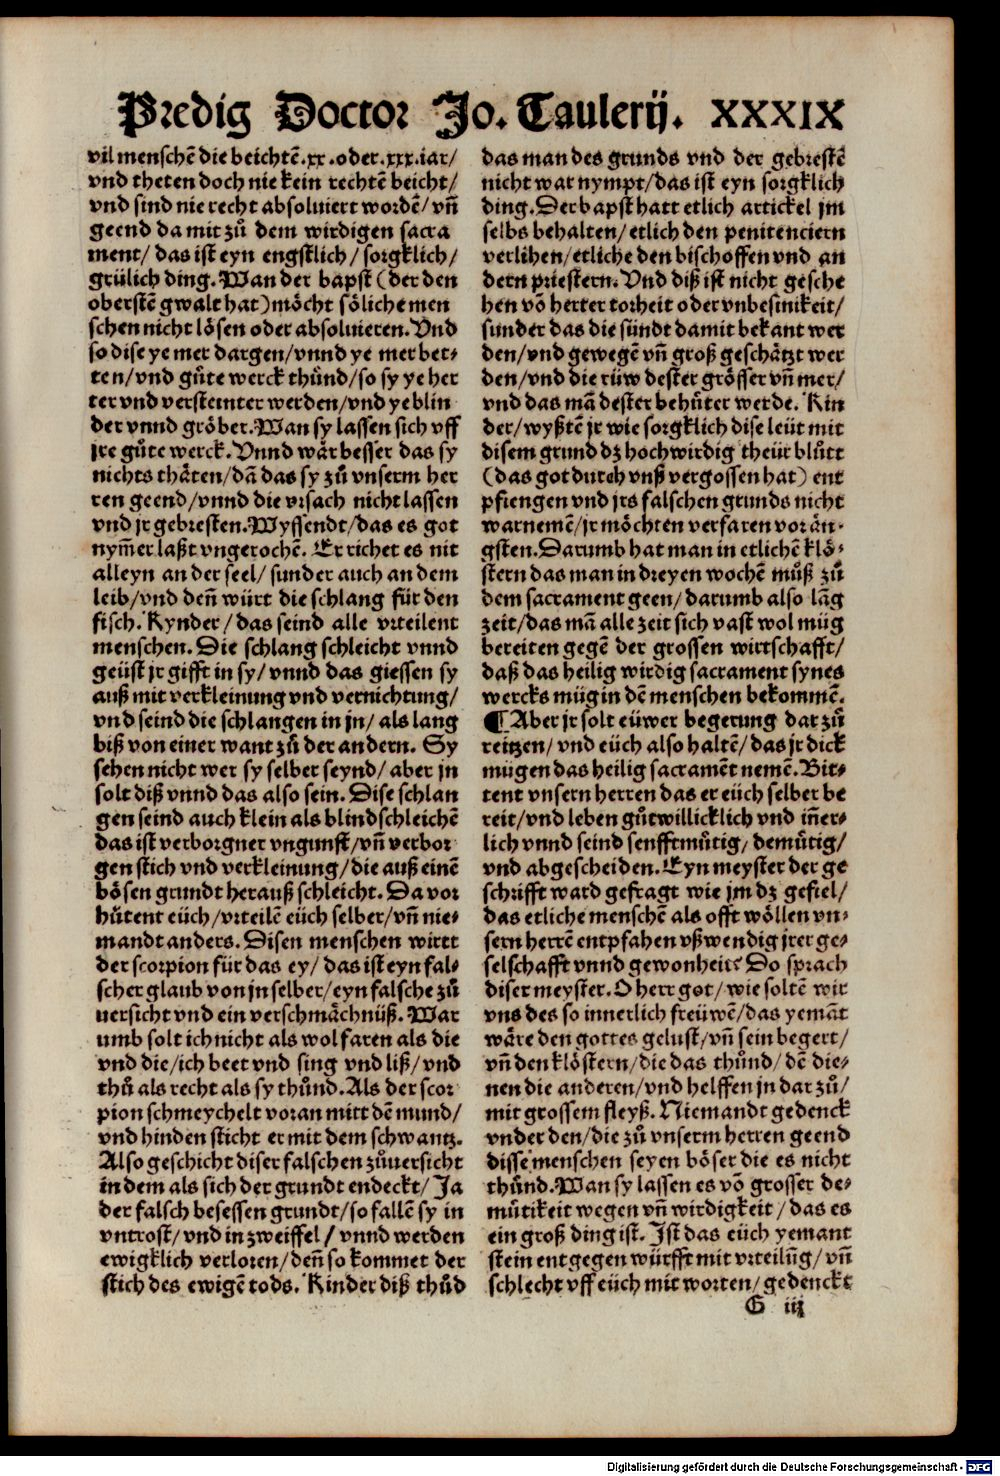 Predig Doctor Jo. Taulerij. XXXIX
vil menschē die beichtē.xx.oder.xxx.iar/
vnd theten doch nie kein rechtē beicht/
vnd sind nie recht absoluiert wordē/vñ
geend da mit zů dem wirdigen sacra
ment/das ist eyn engstlich/sorgklich/
grülich ding.Wan der bapst(der den
oberstē gwalt hat)möcht söliche men
schen nicht lösen oder absoluieren.Vnd
so dise ye mer dargen/vnnd ye mer bet-
ten/vnd gůte werck thůnd/so sy ye her
ter vnd versteinter werden/vnd ye blin
der vnnd gröber.Wan sy lassen sich vff
jre gůte werck.Vnnd wär besser das sy
nichts thäten/dā das sy zů vnserm her
ren geend/vnnd die vrsach nicht lassen
vnd jr gebresten.Wyssendt/das es got
nym̄er laßt vngerochē. Er richet es nit
alleyn an der seel/sunder auch an dem
leib/vnd deñ würt die schlang für den
fisch.Kynder/das seind alle vrteilent
menschen.Die schlang schleicht vnnd
geüst jr gifft in sy/vnnd das giessen sy
auß mit verkleinung vnd vernichtung/
vnd seind die schlangen in jn/als lang
biß von einer want zů der andern. Sy
sehen nicht wer sy selber seynd/aber jn
solt diß vnnd das also sein.Dise schlan
gen seind auch klein als blindschleichē
das ist verborgner vngunst/vñ verbor
gen stich vnd verkleinung/die auß einē
bösen grundt herauß schleicht.Da vor
hůtent eüch/vrteilē eüch selber/vñ nie-
mandt anders.Disen menschen wirtt
der scorpion für das ey/das ist eyn fal-
scher glaub von jn selber/eyn falsche zů
uersicht vnd ein verschmächnüß.War
umb solt ich nicht als wol faren als die
vnd die/ich beet vnd sing vnd liß/vnd
thů als recht als sy thůnd.Als der scor
pion schmeychelt voran mitt dē mund/
vnd hinden sticht er mit dem schwantz.
Also geschicht diser falschen zůuersicht
in dem als sich der grundt endeckt/Ja
der falsch besessen grundt/so fallē sy in
vntrost/vnd in zweiffel/vnnd werden
ewigklich verloren/deñ so kommet der
stich des ewigē tods.Kinder diß thůd
das man des grunds vnd der gebrestē
nicht war nympt/das ist eyn sorgklich
ding.Der bapst hatt etlich artickel jm
selbs behalten/etlich den penitenciern
verlihen/etliche den bischoffen vnd an
dern priestern.Vnd diß ist nicht gesche
hen vō herter torheit oder vnbesinikeit/
sunder das die sündt damit bekant wer
den/vnd gewegē vñ groß geschätzt wer
den/vnd die rüw dester grösser vñ mer/
vnd das mā dester behůter werde.Kin
der/wyßtē jr wie sorgklich dise leüt mit
disem grund dz hochwirdig theür blůtt
(das got durch vnß vergossen hat) ent
pfiengen vnd jrs falschen grunds nicht
warnemē/jr möchten verfaren vor än-
gsten.Darumb hat man in etlichē klö-
stern das man in dreyen wochē můß zů
dem sacrament geen/darumb also lāg
zeit/das mā alle zeit sich vast wol müg
bereiten gegē der grossen wirtschafft/
daß das heilig wirdig sacrament synes
wercks müg in dē menschen bekommē.
¶Aber jr solt eüwer begerung dar zů
reitzen/vnd eüch also haltē/das jr dick
mügen das heilig sacramēt nemē.Bit-
tent vnsern herren das er eüch selber be
reit/vnd leben gůtwillicklich vnd iñer-
lich vnnd seind senfftmůtig/demůtig/
vnd abgescheiden.Eyn meyster der ge
schrifft ward gefragt wie jm dz gefiel/
das etliche menschē als offt wöllen vn-
sern herrē entpfahen vßwendig jrer ge-
selschafft vnnd gewonheit: Do sprach
diser meyster.O herr got/wie soltē wir
vns des so innerlich freüwē/das yemāt
wäre den gottes gelust/vñ sein begert/
vñ den klöstern/die das thůnd/dē die-
nen die anderen/vnd helffen jn dar zů/
mit grossem fleyß.Niemandt gedenck
vnder den/die zů vnserm herren geend
disse menschen seyen böser die es nicht
thůnd.Wan sy lassen es vō grosser de-
mütikeit wegen vñ wirdigkeit/das es
ein groß ding ist.Ist das eüch yemant
stein entgegen würfft mit vrteilūg/vñ
schlecht vff eüch mit worten/gedenckt
G iij
Digitalisierung gefördert durch die Deutsche Forschungsgemeinschaft - DFG